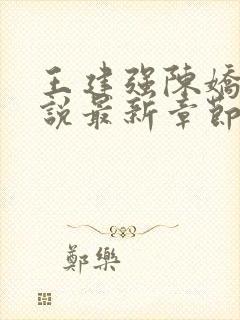 王建强陳嬌
說最新章節
鄭樂